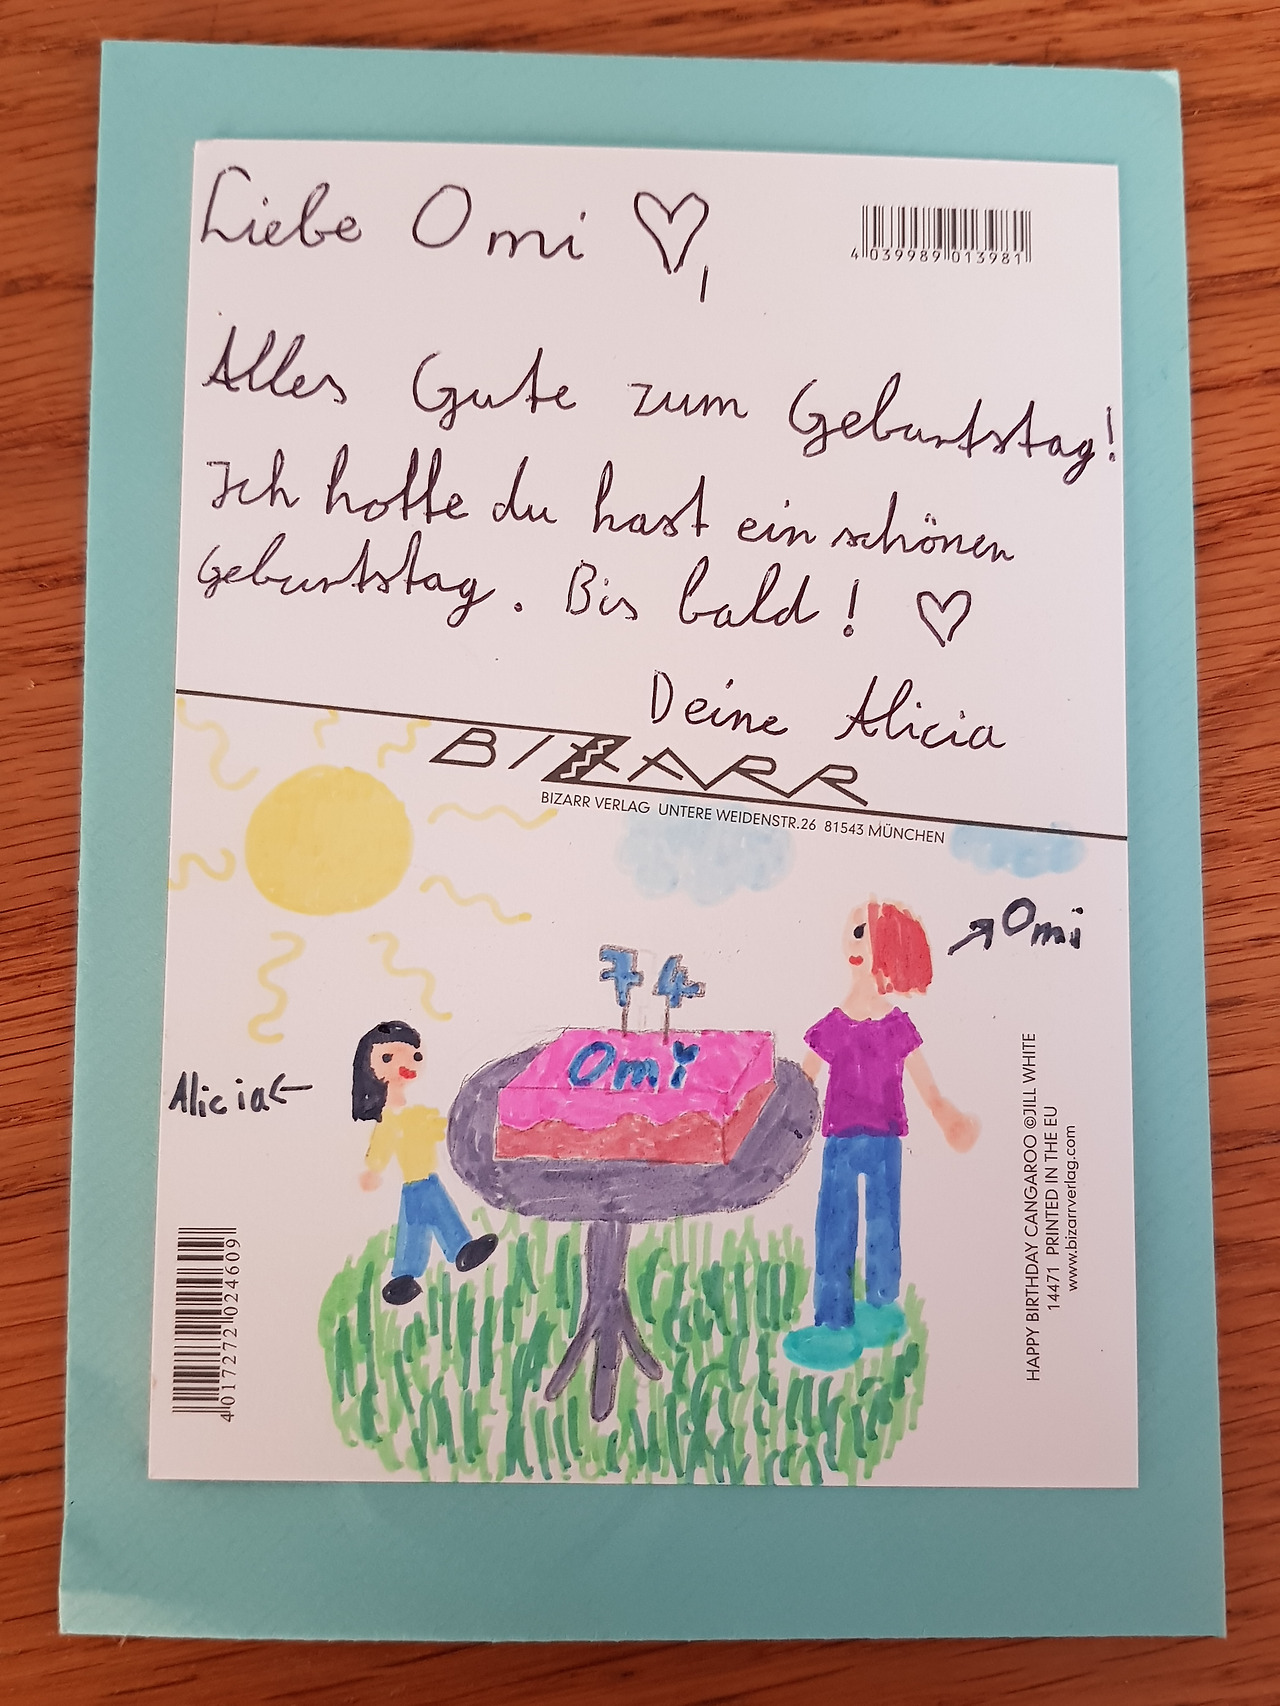 Liebe Omi ♡,
4 039989 013981
Alles Gute zum Geburtstag!
Ich hoffe du hast ein schönen
Geburtstag. Bis bald! ♡
Deine Alicia
BIZARR
BIZARR VERLAG UNTERE WEIDENSTR.26 81543 MÜNCHEN
Omi
74
Omi
Alicia
HAPPY BIRTHDAY CANGAROO ©JILL WHITE
14471 PRINTED IN THE EU
www.bizarrverlag.com
4 017272 024609